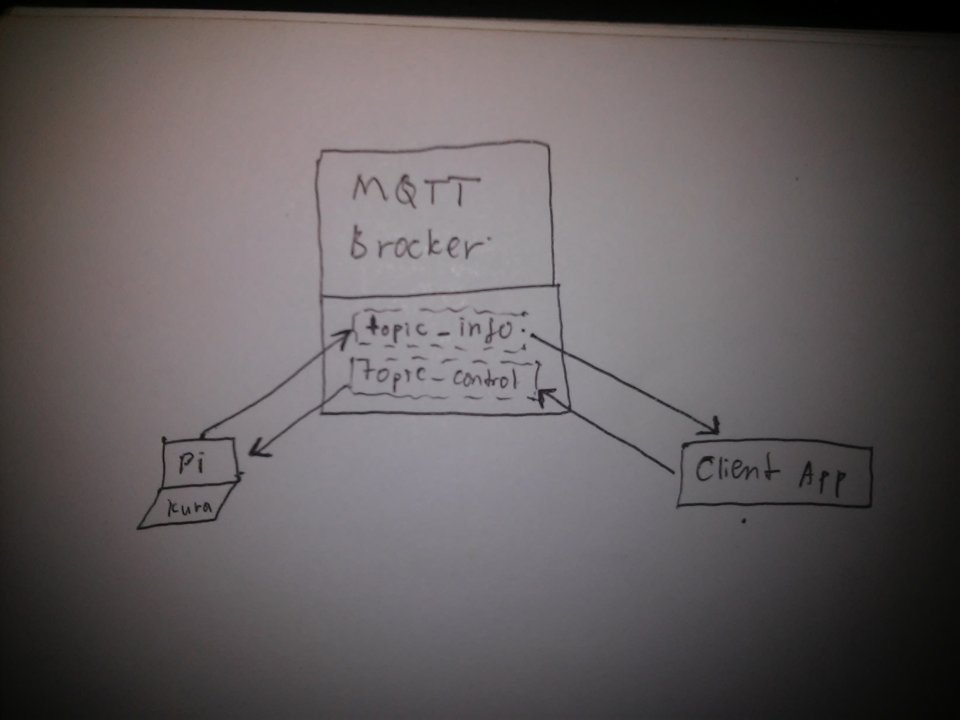 MQTT
Brocker
topic_info
topic_control
Pi
Kura
Client App